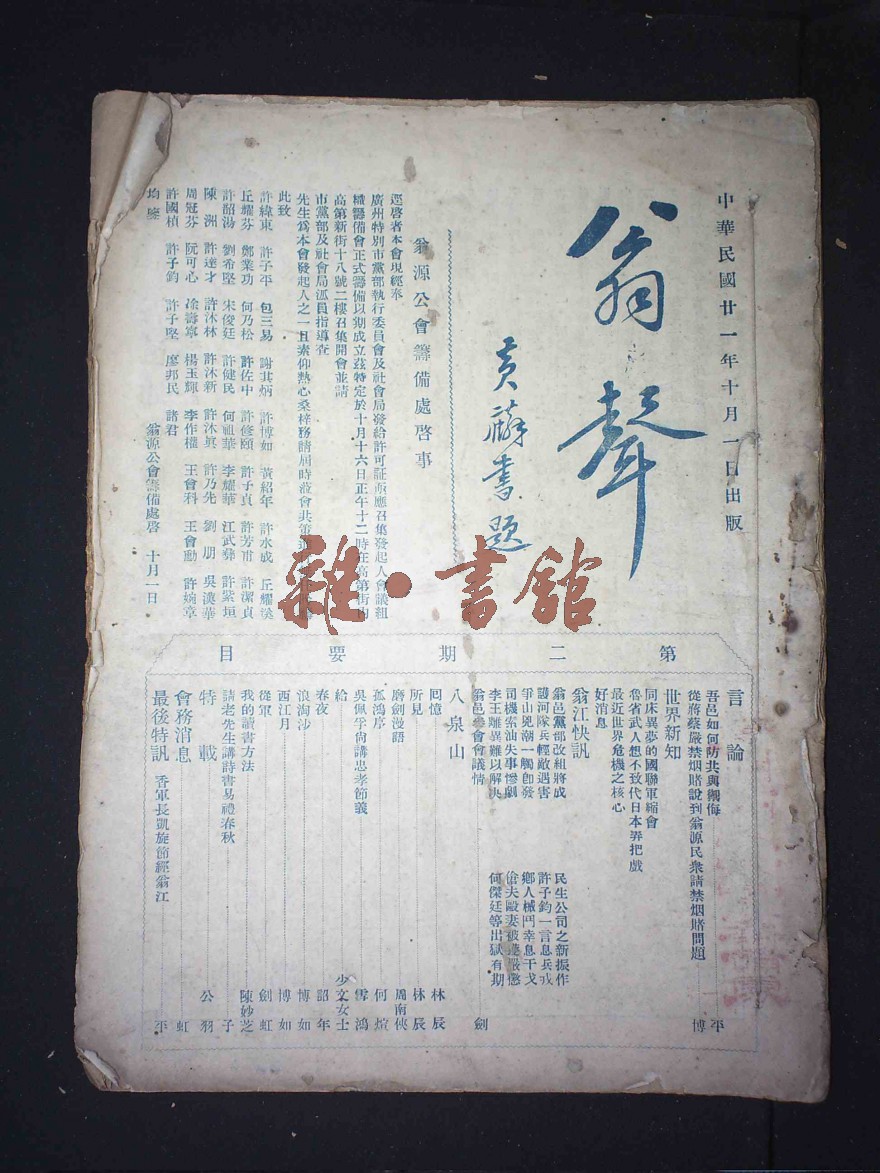 中華民國廿一年十月一日出版
翁聲
黃麟書題
翁源公會籌備處啓事
逕啓者本會現經奉
廣州特別市黨部執行委員會及社會局發給許可証亟應召集發起人會議組
織籌備會正式籌備以期成立茲特定於十月十六日正午十二時在高第街
高第新街十八號二樓召集開會並請
市黨部及社會局派員指導查
先生爲本會發起人之一且素仰熱心桑梓務請屆時蒞會共策進
此致
許緯東 許子平 包三易 謝其炳 許博如 黃紹年 許水成 丘耀漢
丘耀芬 鄭業功 何乃松 許佐中 許修頤 許子貞 許芳甫 許潔貞
許韶湯 劉希堅 宋俊廷 許健民 何祖華 李耀華 江武彝 許紫垣
陳洲 許達才 許沐林 許沐新 許沐眞 許乃先 劉朋 吳漢華
周冠芬 阮可心 凃壽寧 楊玉輝 李作權 王會科 王會勳 許婉章
許國楨 許子鈞 許子堅 廖邦民 諸君
均鑒
翁源公會籌備處啓 十月一日
第二期要目
言論
吾邑如何防共與禦侮 平
從蔣蔡嚴禁烟賭說到翁源民衆請禁烟賭問題 博
世界新知
同床異夢的國聯軍縮會
魯省武人想不致代日本弄把戲
最近世界危機之核心
好消息
翁江快訊
翁邑黨部改組將成 民生公司之新振作
護河隊兵輕敵遇害 許子鈞一言息兵戎
爭山兇潮一觸卽發 鄉人械鬥幸息干戈
司機索油失事慘劇 傖夫毆妻被逮嚴懲
李王離異難以解決 何傑廷等出獄有期
翁邑參會會議情 劍
八泉山
囘憶 林辰
所見 林辰
磨劍漫語 周南俠
孤鴻序 何煊
吳佩孚尙講忠孝節義 雪鴻
給 少文女士
春夜 韶年
浪淘沙 博如
西江月 博如
從軍 劍虹
我的讀書方法 陳妙芝
請老先生講詩書易禮春秋 子
特載 公羽
會務消息 虹
最後特訊 香軍長凱旋節經翁江 平
雜·書館